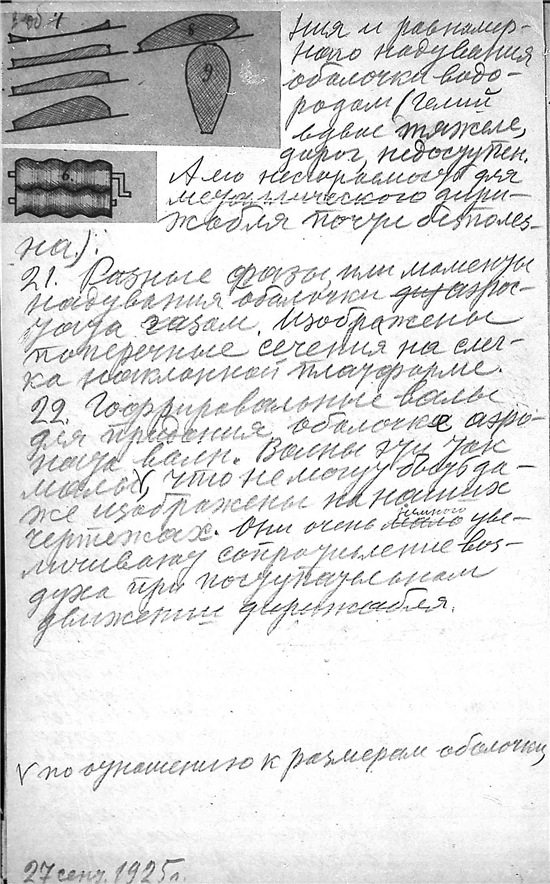 обт
8
9
6.
ния и равномер-
ного надувания
оболочки водо-
родом (гелий
вдвое тяжеле,
дорог, недоступен.
А его несгораемость для
металлического дири-
жабля почти бесполез-
на.).
21. Разные фазы, или моменты
надувания оболочки аэро-
ната газом. Изображены
поперечные сечения на слег-
ка наклонной платформе.
22. Гофрировальные валы
для придания оболочке аэро-
ната волн. Волны эти так
малы √, что не могут быть да-
же изображены на наших
чертежах. Они очень мало немного уве-
личивают сопротивление воз-
духа при поступательном
движении дирижабля.
√ по отношению к размерам оболочки,
27 сент. 1925 г.